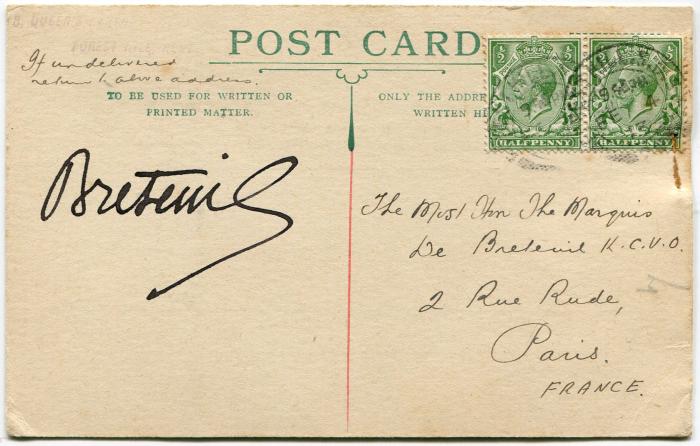 POST CARD
If undelivered
return to above address.
TO BE USED FOR WRITTEN OR
PRINTED MATTER.
ONLY THE ADDRE
WRITTEN HE
1/2 1/2
HALFPENNY HALFPENNY
Breteuil
The Most Hon The Marquis
De Breteuil K.C.V.O.
2 Rue Rude,
Paris.
FRANCE.